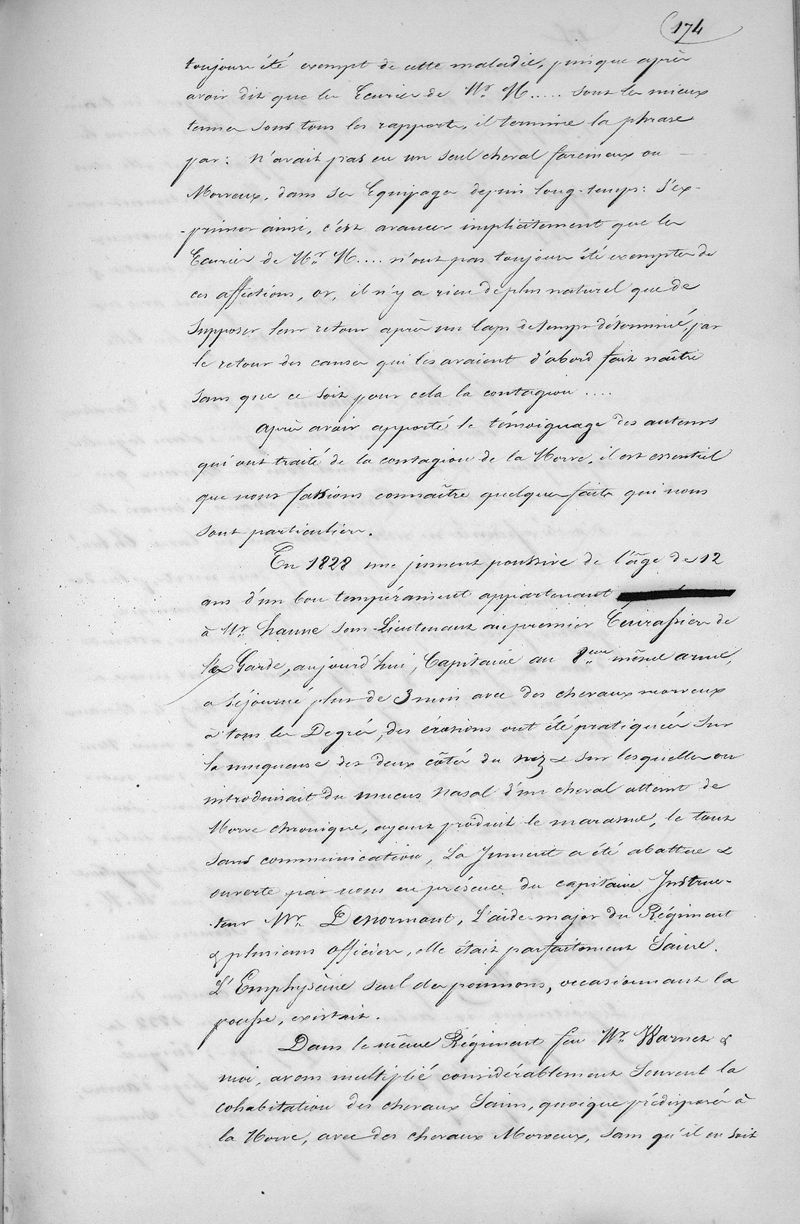 174
toujours été exempt de cette maladie, puisque après
avoir dit que les Ecuries de Mr. N..... sont les mieux
tenues sous tous les rapports, il termine la phrase
par: N'avait pas eu un seul cheval farcineux ou
Morveux, dans ses Equipages depuis long-temps: S'ex-
-primer ainsi, c'est avancer implicitement que les
Ecuries de Mr. N.... n'ont pas toujours été exemptes de
ces affections, or, il n'y a rien de plus naturel que de
supposer leur retour après un laps de temps déterminé, par
le retour des causes qui les avaient d'abord fait naître
sans que ce soit pour cela la contagion ....
Après avoir apporté le témoignage des auteurs
qui ont traité de la contagion de la Morve, il est essentiel
que nous fassions connaître quelques faits qui nous
sont particuliers.
En 1828 une jument poussive de l'âge de 12
ans d'un bon tempérament appartenant
à Mr. Sous Lieutenant au premier Cuirassier de
la Garde, aujourd'hui, Capitaine au 8eme même arme,
a séjourné plus de 3 mois avec des chevaux morveux
à tous les Degrés, des érosions ont été pratiquées sur
la muqueuse des deux côtés du nez & sur lesquelles on
introduisait du mucus nasal d'un cheval atteint de
Morve chronique, ayant produit le marasme, le tout
sans communication, La Jument a été abattue &
ouverte par nous en présence du capitaine Instruc-
-teur Mr. Denormont, L'aide-major du Régiment
& plusieurs officiers, elle était parfaitement Saine.
L'Emphysème seul des poumons, occasionnant la
pousse, existait.
Dans le même Régiment feu Mr. Warnet &
moi, avons multiplié considérablement souvent la
cohabitation des chevaux Sains, quoique prédisposés à
la Morve, avec des chevaux Morveux, sans qu'il en soit